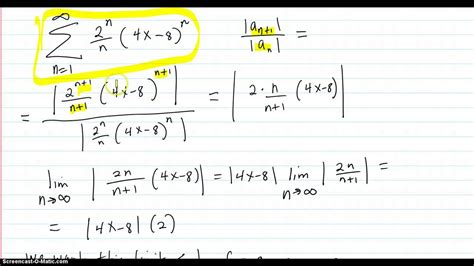 ∞ Σ n=1 2^n/n (4x-8)^n |a_{n+1}|/|a_n| =
= |2^{n+1}/(n+1) (4x-8)^{n+1}| / |2^n/n (4x-8)^n| = |2·n/(n+1) (4x-8)|
lim n→∞ |2n/(n+1) (4x-8)| = |4x-8| lim n→∞ |2n/(n+1)| =
= |4x-8| (2)
Screencast-O-Matic.com